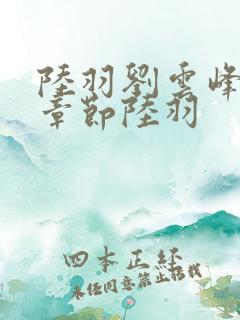 陸羽劉雲峰
章節陸羽
四本正經
未经同意禁止搭讪